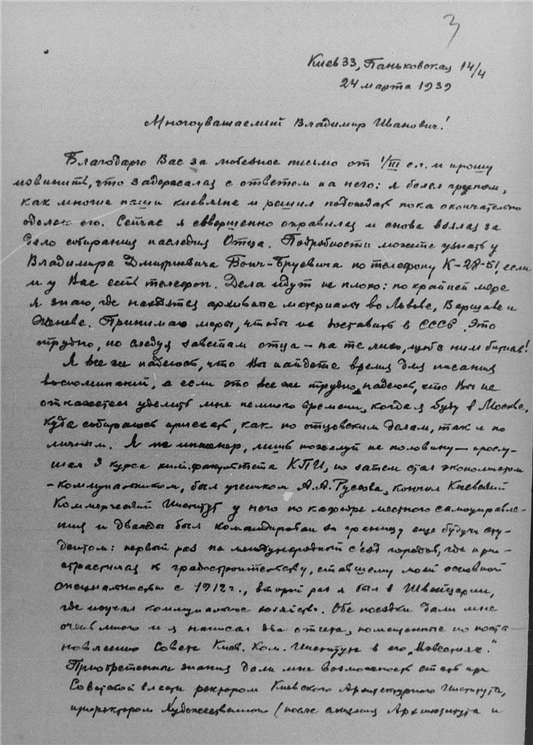 3
Киев 33, Паньковская 14/4
24 марта 1939
Многоуважаемый Владимир Иванович!
Благодарю Вас за любезное письмо от 1/III с.г. и прошу
извинить, что задержался с ответом на него: я болел гриппом,
как многие наши киевляне и решил подождать пока окончательно
одолею его. Сейчас я совершенно оправился и снова взялся за
дело собирания наследия Отца. Подробности можете узнать у
Владимира Дмитриевича Бонч-Бруевича по телефону К-28-51, если
и у Вас есть телефон. Дела идут не плохо: по крайней мере
я знаю, где находятся архивные материалы во Львове, Варшаве и
Женеве. Принимаю меры, чтобы их доставить в СССР. Это
трудно, но следуя заветам отца – на те лихо, щоб з ним битися!
Я все же надеюсь, что Вы найдете время для писания
воспоминаний, а если это все же трудно, надеюсь, что Вы не
откажетесь уделить мне немного времени, когда я буду в Москве,
куда собираюсь приехать, как по отцовским делам, так и по
личным. Я не инженер, лишь пожалуй на половину – прослу-
шал 3 курса хим. факультета КПИ, но затем стал экономистом
-коммунальником, был учеником А.А. Русова, кончил Киевский
Коммерческий Институт у него по кафедре местного самоуправле-
ния и дважды был командирован за границу еще будучи сту-
дентом: первый раз на международный съезд городов, где при-
страстился к градостроительству, ставшему моей основной
специальностью с 1912 г., второй раз я был в Швейцарии,
где изучал коммунальное хозяйство. Обе поездки дали мне
очень много и я написал два отчета, помещенные по поста-
новлению Совета Киев. Ком. Института в его "Известиях".
Приобретенные знания дали мне возможность стать при
Советской власти ректором Киевского Архитектурного Института,
проректором Художественного (после слияния Архинститута и